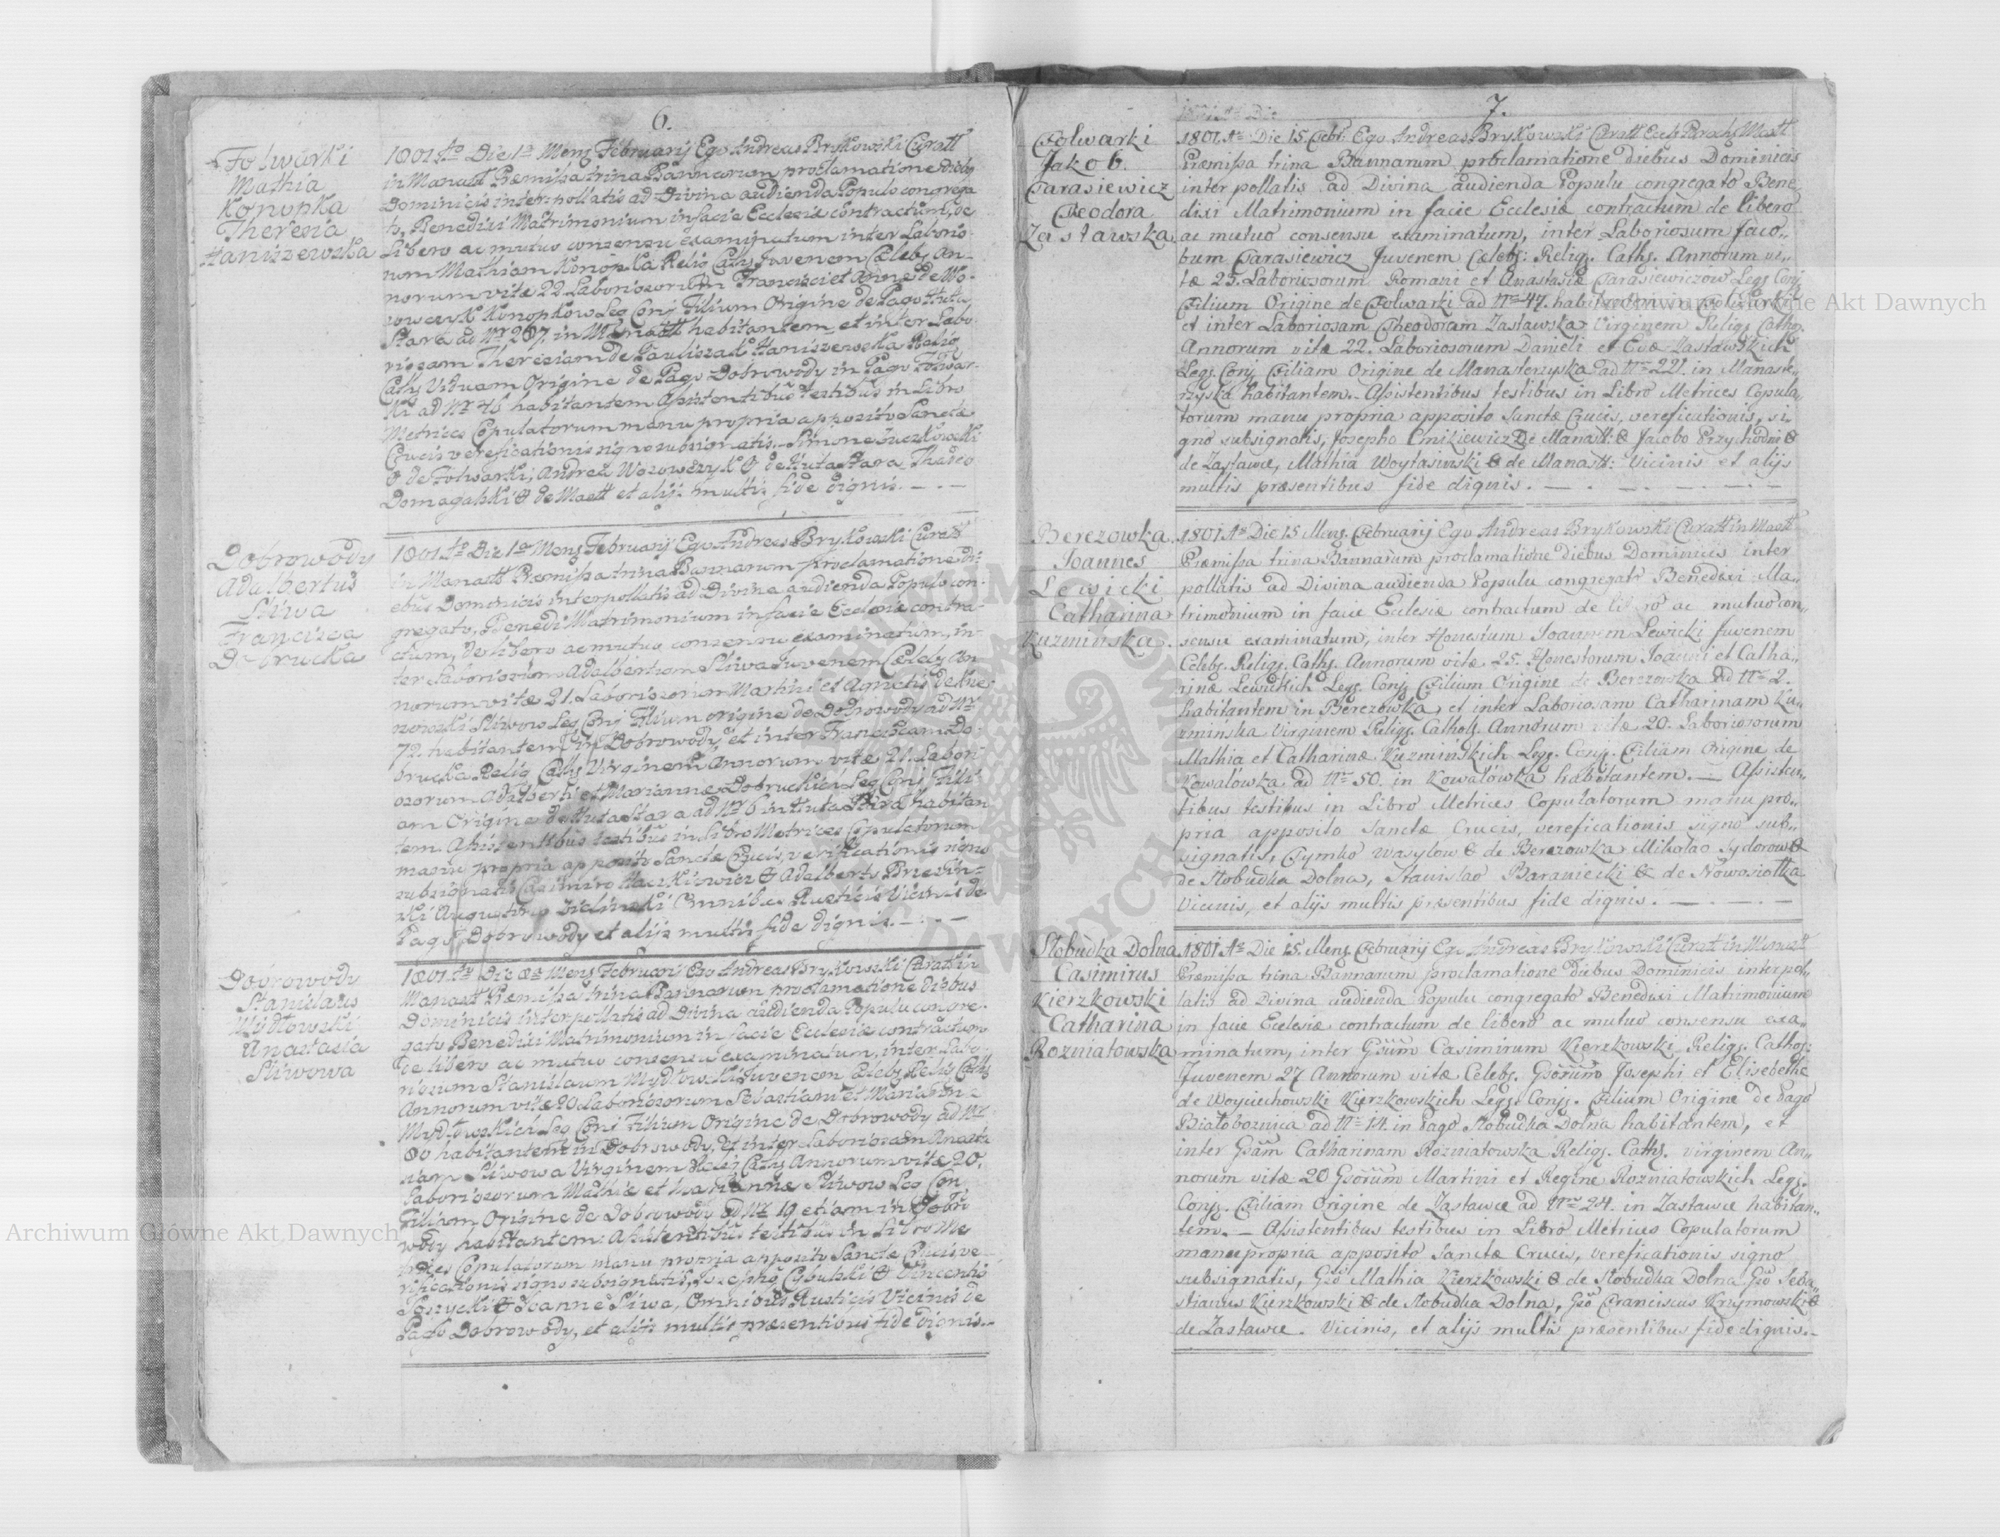 6.
Folwarki
Mathia
Konopka
Theresia
Haniszewska
1801 Ao Die 1a Mens Februarij Ego Andreas Brykowski Curatt
in Manastt Præmissa trina Bannorum proclamatione diebg
Dominicis inter pollatis ad Divina audienda Populo congrega
to, Benedixi Matrimonium in facie Ecclesiæ contractum, de
Libero ac mutuo consensu examinatum inter Laborio-
rum Mathiam Konopka Relig Cathg Juvenem Cæleb, An-
norum vitæ 22. Laboriosorum Francisci et Annæ de Wo-
rowczyk Konopkow Leg Conj Filium Origine de Pago Huta
Stara ad Nr 207. in Manastt habitantem, et inter Labo
riosam Theresiam de Pauliszak Haniszewska Relig
Cathg Viduam Origine de Pago Dobrowody in Pago Folwar-
ki ad Nr 46 habitantem Assistentibus testibus in Libro
Metrices Copulatorum manu propria apposito Sanctæ
Crucis vereficationis signo subsignatis. Simone
& de Folwarki, Andrea Worowczyk & de Huta Stara, Thadeo
Domagalski & de Mastt et alijs multis fide dignis. — . —
Dobrowody
Adalbertus
Sliwa
Francisca
Dobrucka
1801 Ao Die 1a Mens Februarij Ego Andreas Brykowski Curatt
in Manastt Præmissa trina Bannorum proclamatione di-
ebus Dominicis inter pollatis ad Divina audienda Populo con-
gregato, Benedixi Matrimonium in facie Ecclesiæ contra-
ctum, de libero ac mutuo consensu examinatum, in-
ter Laboriosum Adalbertum Sliwa Juvenem Cæleby An
norum vitæ 21. Laboriosorum Martini et Agnetis de
Sliwow Leg Conj Filium origine de Dobrowody ad Nr
72. habitantem in Dobrowody, et inter Franciscam Do-
brucka Relig Cathg Virginem Annorum vitæ 21. Labori-
osorum Adalberti et Mariannæ Dobruckich Leg Conj Fili-
am Origine de Huta Stara ad Nr 6 in Huta Stara habitan
tem. Assistentibus testibus in Libro Metrices Copulatorum
manu propria apposito Sanctæ Crucis, verificationis signo
subsignatis Casimiro Haczkiewicz & Adalberto
ki Augustino Zielinski Omnibus Rusticis Vicinis de
Pago Dobrowody et alijs multis fide dignis. — . —
Dobrowody
Stanislaus
Mydłowski
Anastasia
Sliwowa
1801 Ao Die 8a Mens Februarj Ego Andreas Brykowski Curatt in
Manastt Præmissa trina Bannorum proclamatione diebus
Dominicis inter pollatis ad Divina audienda Populo congre-
gato Benedixi Matrimonium in facie Ecclesiæ contractum
de libero ac mutuo consensu examinatum, inter Labo-
riosum Stanislaum Mydłowski Juvenem Cælebg Relig Cathg
Annorum vitæ 20. Laboriosorum Sebastiani et Mariannæ
Mydłowskich Leg Conj Filium Origine de Dobrowody ad Nr
80 habitantem in Dobrowody, et inter Laboriosam Anasta
siam Sliwowa Virginem Relig Cathg Annorum vitæ 20.
Laboriosorum Mathiæ et Mariannæ Sliwow Leg Con
Filiam Origine de Dobrowody ad Nr 19 etiam in Dobro
wody habitantem. Assistentibus testibus in Libro Me
trices Copulatorum manu propria apposito Sanctæ Crucis ve-
rificationis signo subsignatis, Josepho Cybulski & Vincentio
& Joanne Sliwa, Omnibus Rusticis Vicinis de
Pago Dobrowody, et alijs multis præsentibus fide dignis. —
7.
Folwarki
Jakob.
Tarasiewicz
Theodora
Zasławska
1801 Ao Die 15. Febr. Ego Andreas Brykowski Curatt Eccl. Parochg Mastt
Præmissa trina Bannarum proclamatione diebus Dominicis
inter pollatis ad Divina audienda Populu congregato Bene
dixi Matrimonium in facie Ecclesiæ contractum de libero
ac mutuo consensu examinatum, inter Laboriosum Jaco-
bum Tarasiewicz Juvenem Cælebg: Religg. Cathg. Annorum vi-
tæ 25. Laboriosorum Romani et Anastasiæ Tarasiewiczow Legg. Conj.
Filium Origine de Folwarki ad Nro 47. habitantem in Folwarki
et inter Laboriosam Theodoram Zasławska Virginem Religg. Cathg.
Annorum vitæ 22. Laboriosorum Danieli et Evæ Zasławskich
Legg. Conj. Filiam Origine de Manasterzyska ad Nro 221. in Manaste-
rzyska habitantem. Assistentibus testibus in Libro Metrices Copula-
torum manu propria apposito Sanctæ Crucis, vereficationis, si-
gno subsignatis, Josepho Cmikiewicz De Manastt: & Jacobo Przyhodni &
de Zastawce, Mathia Woytasinski & de Manastt: Vicinis et alijs
multis præsentibus fide dignis. — . — . — . —
Berezowka
Joannes
Lewicki
Catharina
Kuzminska.
1801 Ao Die 15 Mens. Februarij Ego Andreas Brykowski Curatt in Mastt
Præmissa trina Bannarum proclamatione diebus Dominicis inter
pollatis ad Divina audienda Populu congregato Benedixi Ma-
trimonium in facie Ecclesiæ contractum de libero ac mutuo con-
sensu examinatum, inter Honestum Joannem Lewicki Juvenem
Celebg. Religg. Cathg. Annorum vitæ 25. Honestorum Joanni et Catha-
rinæ Lewickich Legg. Conj. Filium Origine de Berezowka ad Nro 2.
habitantem in Berezowka, et inter Laboriosam Catharinam Ku-
zminska Virginem Religg. Catholg. Annorum vitæ 20. Laboriosorum
Mathia et Catharinæ Kuzminskich Legg. Conj. Filiam Origine de
Kowalówka ad Nro 50. in Kowalówka habitantem. — Assisten-
tibus testibus in Libro Metrices Copulatorum manu pro-
pria apposito Sanctæ Crucis, vereficationis signo sub-
signatis, Tymko Wasylow & de Berezowka Mikolao Sydorow &
de Słobudka Dolna, Stanislao Baraniecki & de Nowosiołka
Vicinis, et alijs multis præsentibus fide dignis. — . — . —
Słobudka Dolna
Casimirus
Kierzkowski
Catharina
Rozniatowska
1801 Ao Die 15. Mens. Februarij Ego Andreas Brykowski Curatt in Manastt
Præmissa trina Bannarum proclamatione diebus Dominicis interpol-
latis ad Divina audienda Populu congregato Benedixi Matrimonium
in facie Ecclesiæ contractum de libero ac mutuo consensu exa-
minatum, inter Gsum Casimirum Kierzkowski Religg. Cathog:
Juvenem 27 Annorum vitæ Celebg. Gsorum Josephi et Elisebethe
de Woyciechowski Kierzkowskich Legg. Conj. Filium Origine de Pago
Białobożnica ad Nro 14. in Pago Słobudka Dolna habitantem, et
inter Gsam Catharinam Rozniatowska Religg. Cathg. virginem An-
norum vitæ 20 Gsorum Martini et Regine Rozniatowskich Legg.
Conj. Filiam Origine de Zastawce ad Nro 24. in Zastawce habitan-
tem. — Assistentibus testibus in Libro Metrices Copulatorum
manu propria apposito Sanctæ Crucis, vereficationis signo
subsignatis, Gso Mathia Kierzkowski & de Słobudka Dolna Gso Seba-
stianus Kierzkowski & de Słobudka Dolna, Gso Franciscus Krzymowski &
de Zastawce. Vicinis, et alijs multis præsentibus fide dignis. —
Archiwum Główne Akt Dawnych
Archiwum Główne Akt Dawnych
ARCHIWUM GŁÓWNE AKT DAWNYCH